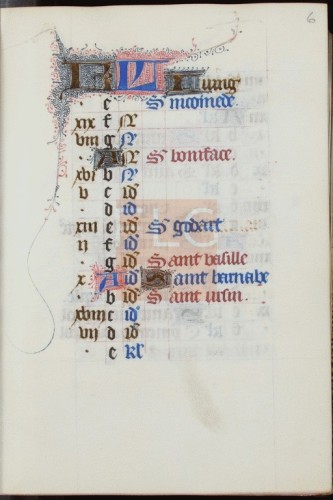 6
KL Iung
e S nicomede.
xix f N
viii g N
A N S boniface.
xvi b N
v c id
d id
xiii e id S godart
ii f id
g id Saint basille
x A id Saint barnabe
b id Saint ursin.
xviii c id
vii d id
e kl
LC